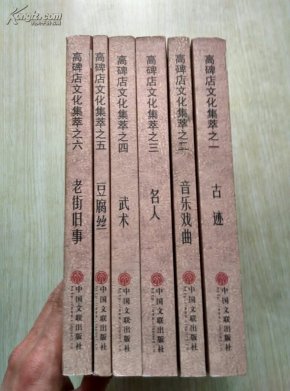 高碑店文化集萃之六
老街旧事
中国文联出版社
高碑店文化集萃之五
豆腐丝
中国文联出版社
高碑店文化集萃之四
武术
中国文联出版社
高碑店文化集萃之三
名人
中国文联出版社
高碑店文化集萃之二
音乐戏曲
中国文联出版社
高碑店文化集萃之一
古迹
中国文联出版社